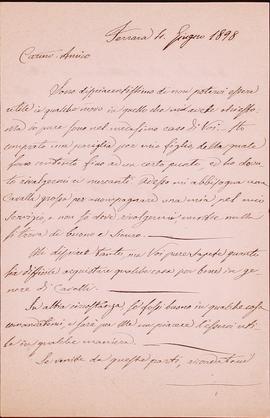 Ferrara 4. Giugno 1898
Carino Amico
Sono dispiacentissimo di non potervi essere
utile in qualche modo in quello che mi avete chiesto.
Ma io pure sono nel medesimo caso di Voi. Ho
comprato una pariglia per mio figlio della quale
sono contento fino ad un certo punto, e ho dovuto
rivolgermi ai mercanti. Adesso mi abbisogna una
Cavalla grossa per accompagnare una mia pel mio
Servizio, e non so dove rivolgermi mentre nulla
si trova di buono e sicuro.
Mi dispiace tanto, ma Voi pure sapete quanto
sia difficile acquistare qualche cosa per bene in ge-
nere di Cavalli.
In altra circostanza, se fossi buono in qualche cosa
comandatemi, e sarà per me un piacere l'esservi uti-
le in qualche maniera.
Se venite da queste parti, ricordatevi